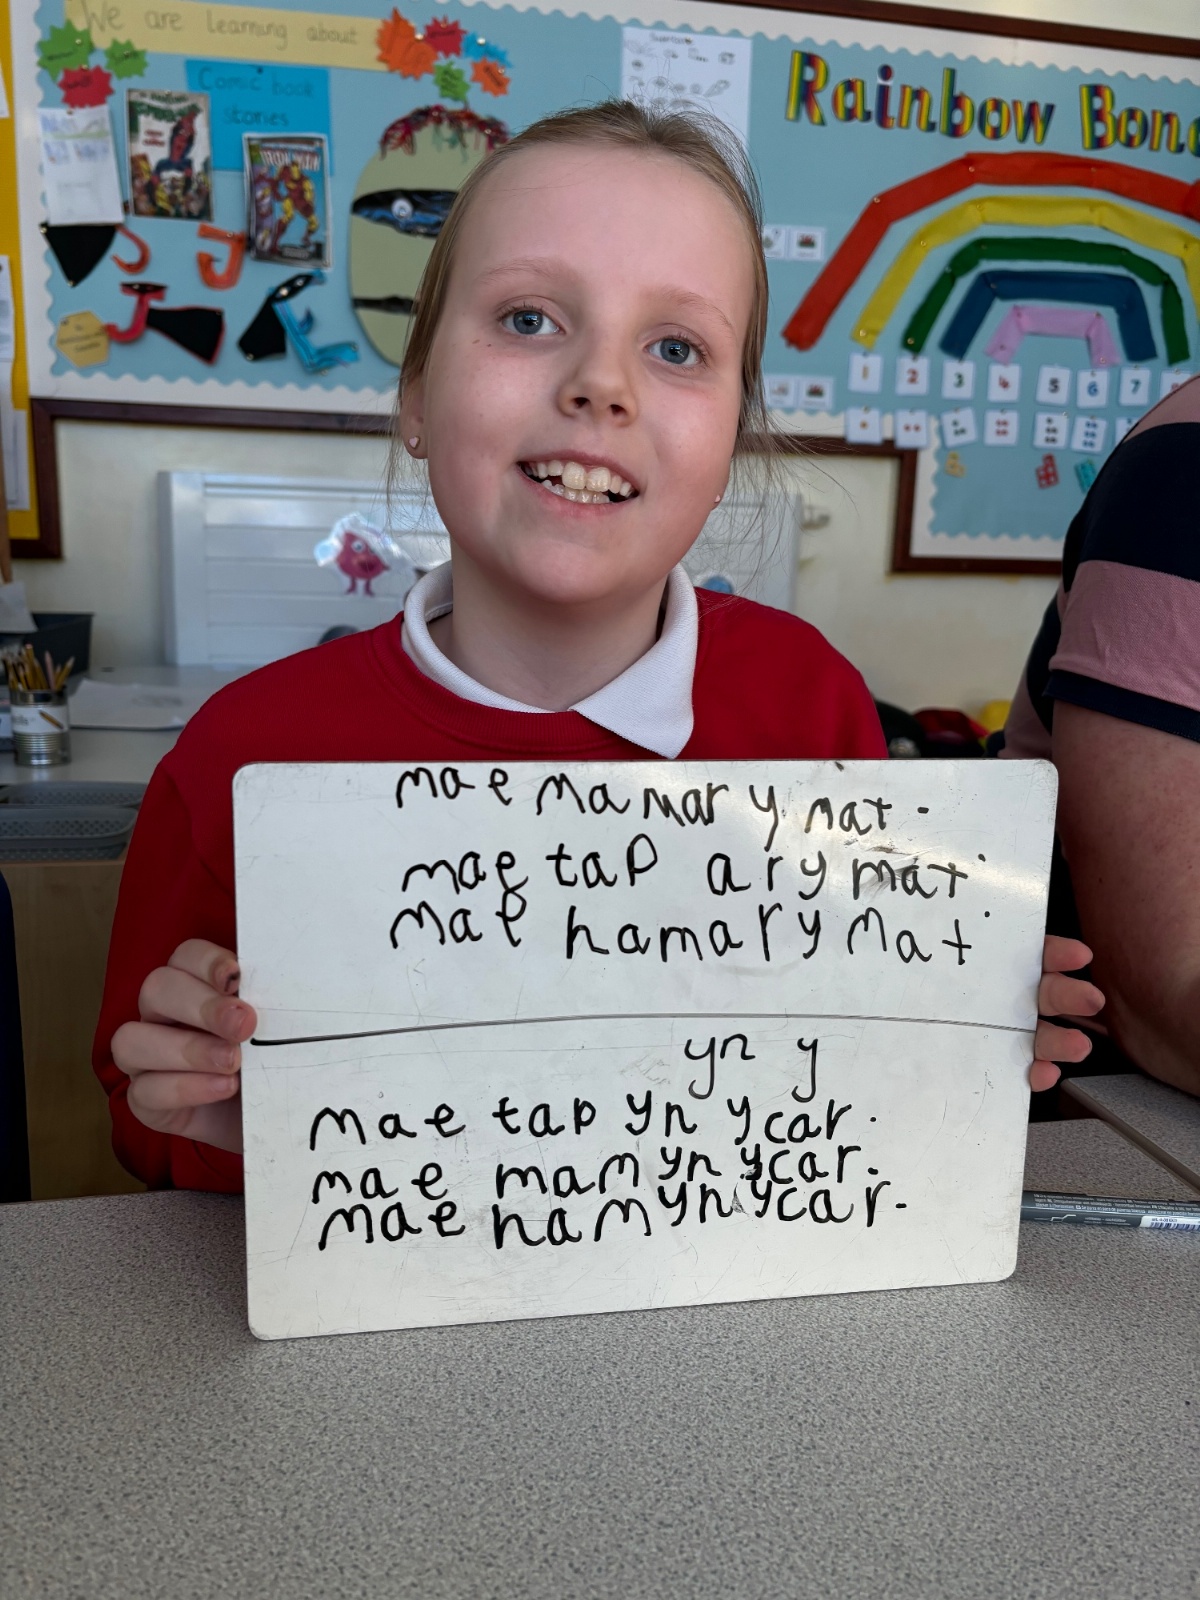 We are learning about
Comic book
stories
IRON MAN
Rainbow Bon
1 2 3 4 5 6 7
mae mamar y mat.
mae tap ar y mat.
mae ham ar y mat.
yn y
mae tap yn y car.
mae mam yn y car.
mae ham yn y car.